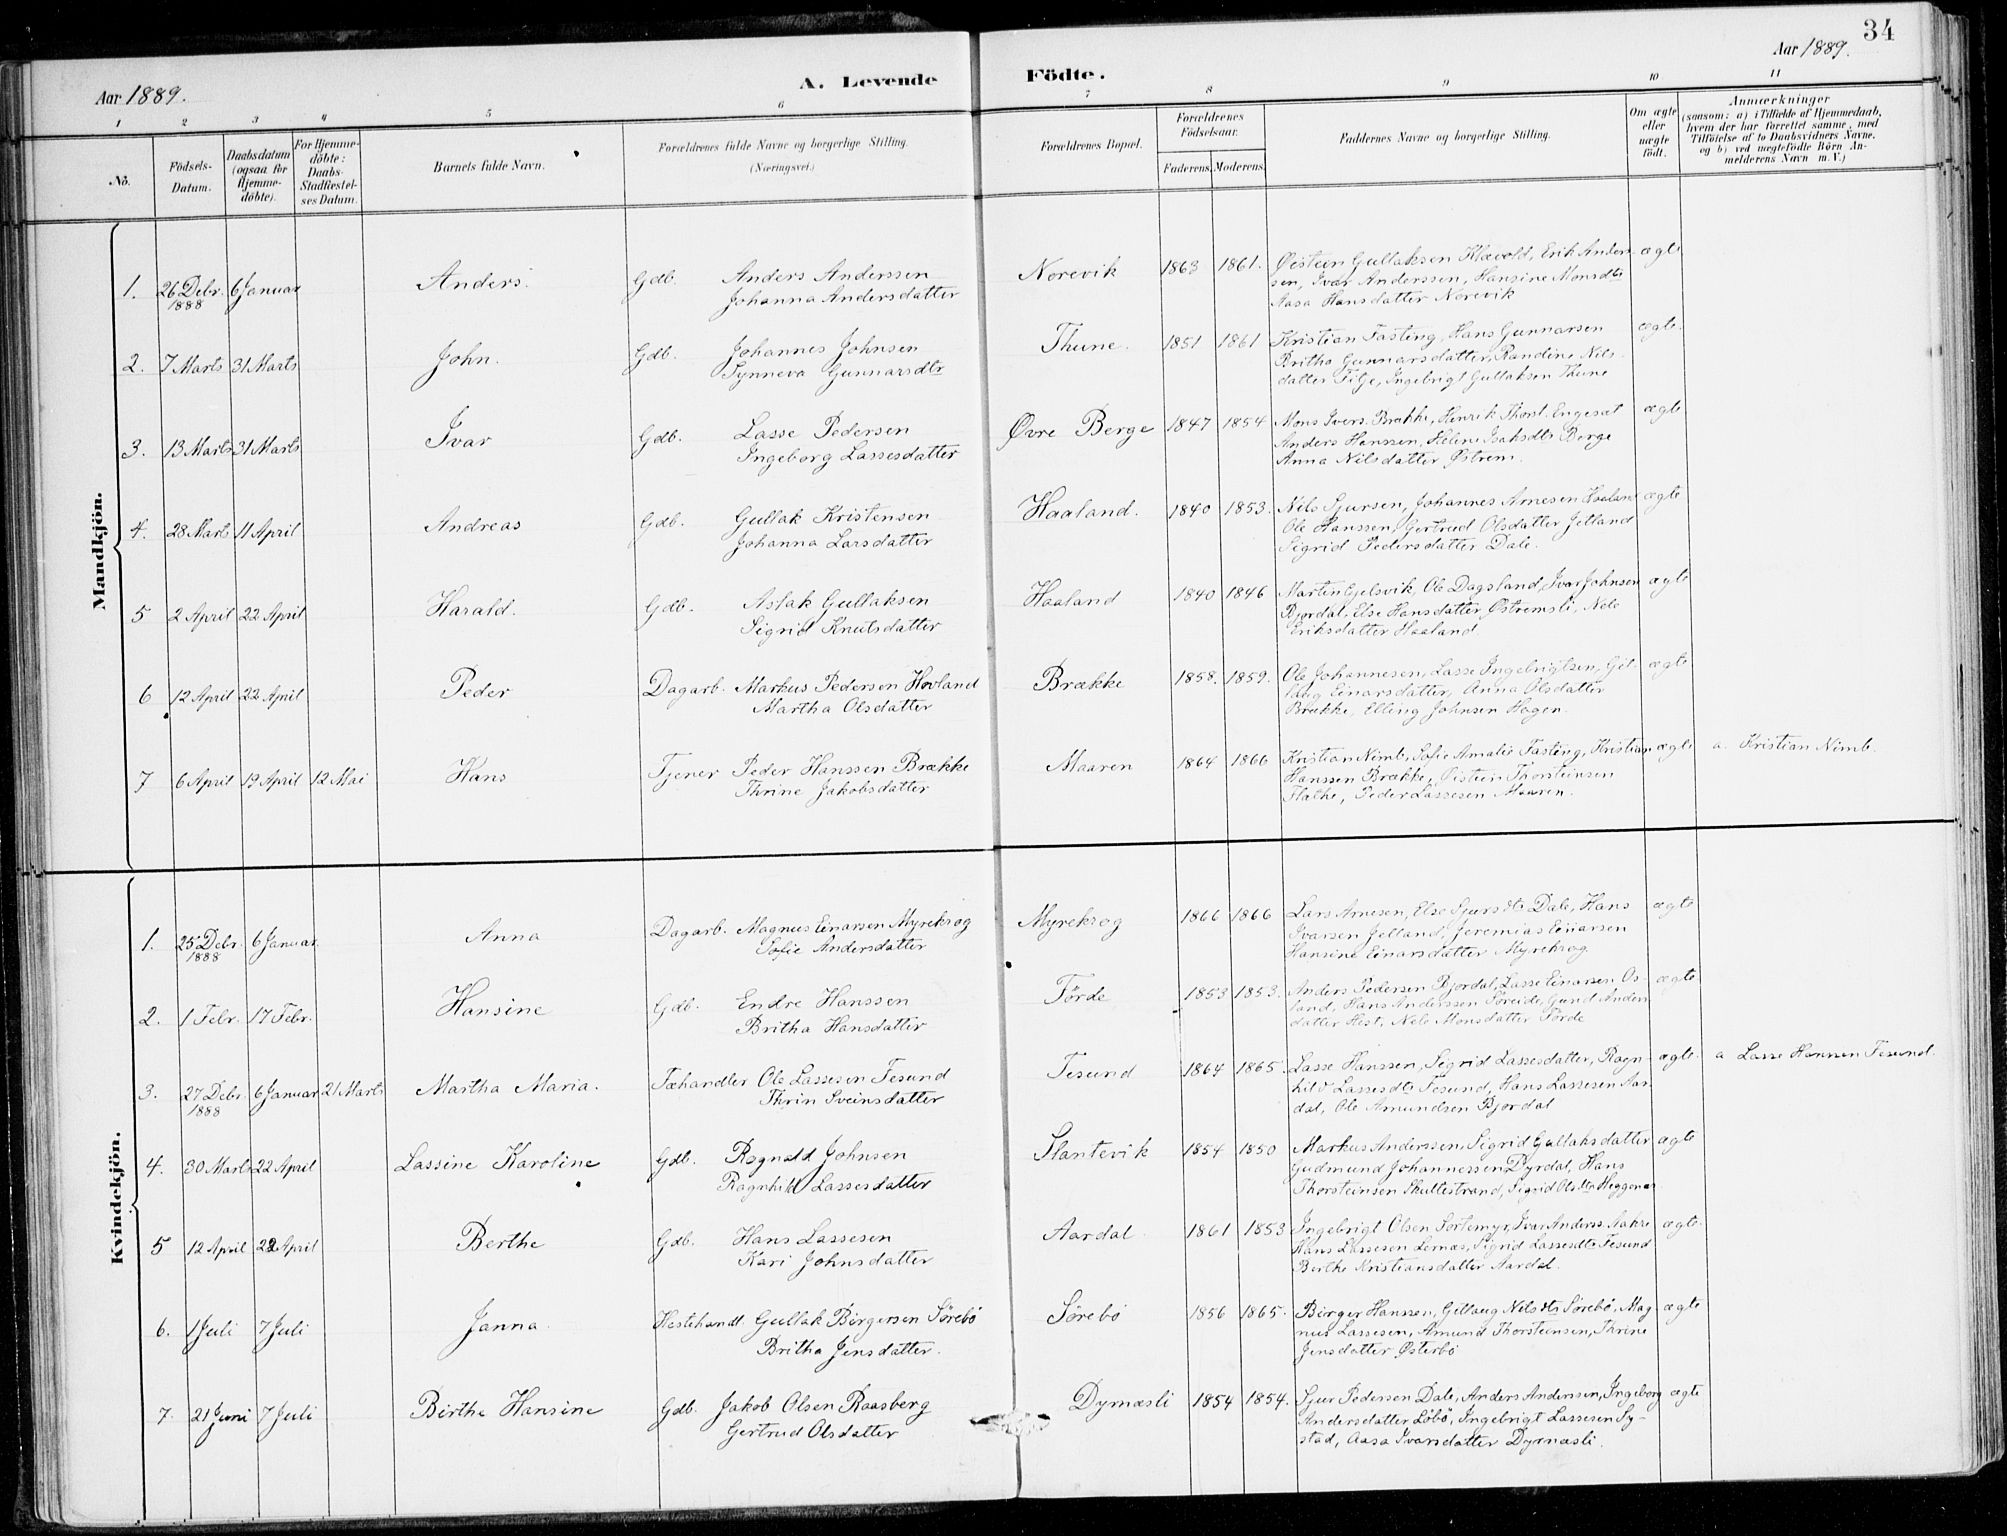 34
Aar 1889.
A. Levende Födte.
Aar 1889.
1 2 3 4 5 6 7 8 9 10 11
No.
Födsels-Datum.
Daabsdatum (ogsaa for Hjemme-döbte).
For Hjemme-döbte: Daabs-Stadfæstel-ses Datum.
Barnets fulde Navn.
Forældrenes fulde Navne og borgerlige Stilling. (Næringsvei.)
Forældrenes Bopæl.
Forældrenes Födselsaar.
Faderens. Moderens.
Faddernes Navne og borgerlige Stilling.
Om ægte eller uægte födt.
Anmærkninger (saasom: a) i Tilfælde af Hjemmedaab, hvem der har forrettet samme, med Tilföielse af to Daabsvidners Navne, og b) ved uægtefödte Börn An-melderens Navn m. V.)
Mandkjön.
1. 26 Debr. 1888 6 Januar Anders. Gdb. Anders Anderssen
Johanna Andersdatter Norevik 1863 1861. Øistein Gullaksen Klævold, Erik Anders-
sen, Ivar Anderssen, Hansine Monsdtr
Aasa Hansdatter Norevik ægte
2. 7 Marts 31 Marts John. Gdb. Johannes Johnsen
Synneva Gunnarsdtr Thune. 1851 1861 Kristian Fasting, Hans Gunnarsen
Britha Gunnarsdatter, Randine Nils-
datter Tilje, Ingebrigt Gullaksen Thune ægte.
3. 13 Marts 31 Marts Ivar Gdb. Lasse Pedersen
Ingeborg Lassesdatter Øvre Berge 1847 1854 Mons Ivers. Brække, Henrik Thorst. Engesæt
Anders Hanssen, Helene Isaksdtr Berge
Anna Nilsdatter Østrem. ægte
4. 28 Marts 11 April Andreas Gdb. Gullak Kristensen
Johanna Larsdatter Haaland. 1840 1853. Nils Sjursen, Johannes Arnesen Haaland
Ole Hanssen, Gertrud Olsdatter Jetland
Sigrid Pedersdatter Dale. ægte
5 2 April 22 April Harald. Gdb. Aslak Gullaksen
Sigrid Knutsdatter Haaland 1840 1846 Martin Gjelsvik, Ole Dagsland, Ivar Johnsen
Bjordal, Else Hansdatter Østremsli, Nele
Eriksdatter Haaland. ægte
6 12 April 22 April Peder Dagarb. Markus Pedersen Hovland
Martha Olsdatter Brække 1858. 1859. Ole Johannesen, Lasse Ingebrigtsen, Gjt-
laug Einarsdatter, Anna Olsdatter
Brække, Elling Johnsen Hagen. ægte
7 6 April 13 April 12 Mai Hans Tjener Peder Hanssen Brække
Thrine Jakobsdatter Maaren 1864 1866 Kristian Nimb, Sofie Amalie Fasting, Kristian
Hanssen Brække, Øistein Thorsteinsen
Flathe, Peder Lassesen Maaren. ægte a. Kristian Nimb.
Kvindekjön.
1. 25 Debr. 1888 6 Januar Anna Dagarb. Magnus Einarsen Myrekrog
Sofie Andersdatter Myrekrog 1866 1866 Lars Arnesen, Else Sjursdtr Dale, Hans
Ivarsen Jetland, Jeremias Einarsen
Hansine Einarsdatter Myrekrog ægte
2. 1 Febr. 17 Febr. Hansine Gdb. Endre Hanssen
Britha Hansdatter Förde 1853 1853. Anders Pedersen Bjordal, Lasse Einarsen Os-
land, Hans Anderssen Søreide, Gurid Anders-
datter Hest, Nele Monsdatter Förde ægte
3. 27 Debr. 1888 6 Januar 21 Marts Martha Maria. Fæhandler Ole Lassesen Tesund
Thrin Sveinsdatter Tesund 1864 1865. Lasse Hanssen, Sigrid Lassesdatter, Ragn-
hild Lassesdtr Tesund, Hans Lassesen Aar-
dal, Ole Amundsen Bjordal ægte a Lasse Hanssen Tesund.
4. 30 Marts 22 April Lassine Karoline Gdb. Ragnald Johnsen
Ragnhild Lassesdatter Slantevik 1854 1850 Markus Anderssen, Sigrid Gullaksdatter
Gudmund Johannessen Dyrdal, Hans
Thorsteinsen Skullestrand, Sigrid Olsdtr Heggenes ægte
5 12 April 22 April Berthe Gdb. Hans Lassesen
Kari Johnsdatter Aardal 1861 1853 Ingebrigt Olsen Sortemyr, Ivar Anderss. Aakre
Hans Lassesen Lernæs, Sigrid Lassesdtr Tesund
Berthe Kristiansdatter Aardal. ægte.
6. 1 Juli 7 Juli Janna. Hestehandl. Gullak Børgersen Sörebö
Britha Jensdatter. Sörebö 1856 1865. Børger Hanssen, Gitlaug Nilsdtr Sörebö, Mag-
nus Lassesen, Amund Thorsteinsen, Thrine
Jensdatter Østerbö ægte
7. 21 Juni 7 Juli Birthe Hansine Gdb. Jakob Olsen Raasberg
Gertrud Olsdatter Dyrnæsli 1854 1854. Sjur Pedersen Dale, Anders Anderssen, Ingeborg
Andersdatter Löbö, Ingebrigt Lassesen Sy-
stad, Aasa Ivarsdatter Dyrnæsli. ægte